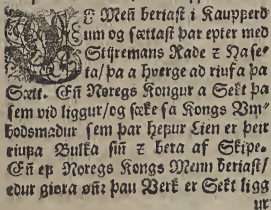 EF Men beriast i Kaupperd
um og sættast þar epter med
Stijremans Rade z Hase-
ta/þa a hverge ad riufa þa
Sætt. En Noregs Kongur a Sekt þa
sem vid liggur/og sæke sa Kongs Vm-
bodsmadur sem þar hefur Lien er þeir
riupa Bulka sin z bera af Skipe.
En ef Noregs Kongs Menn beriast/
edur giora øñr þau Verk er Sekt ligg
ur